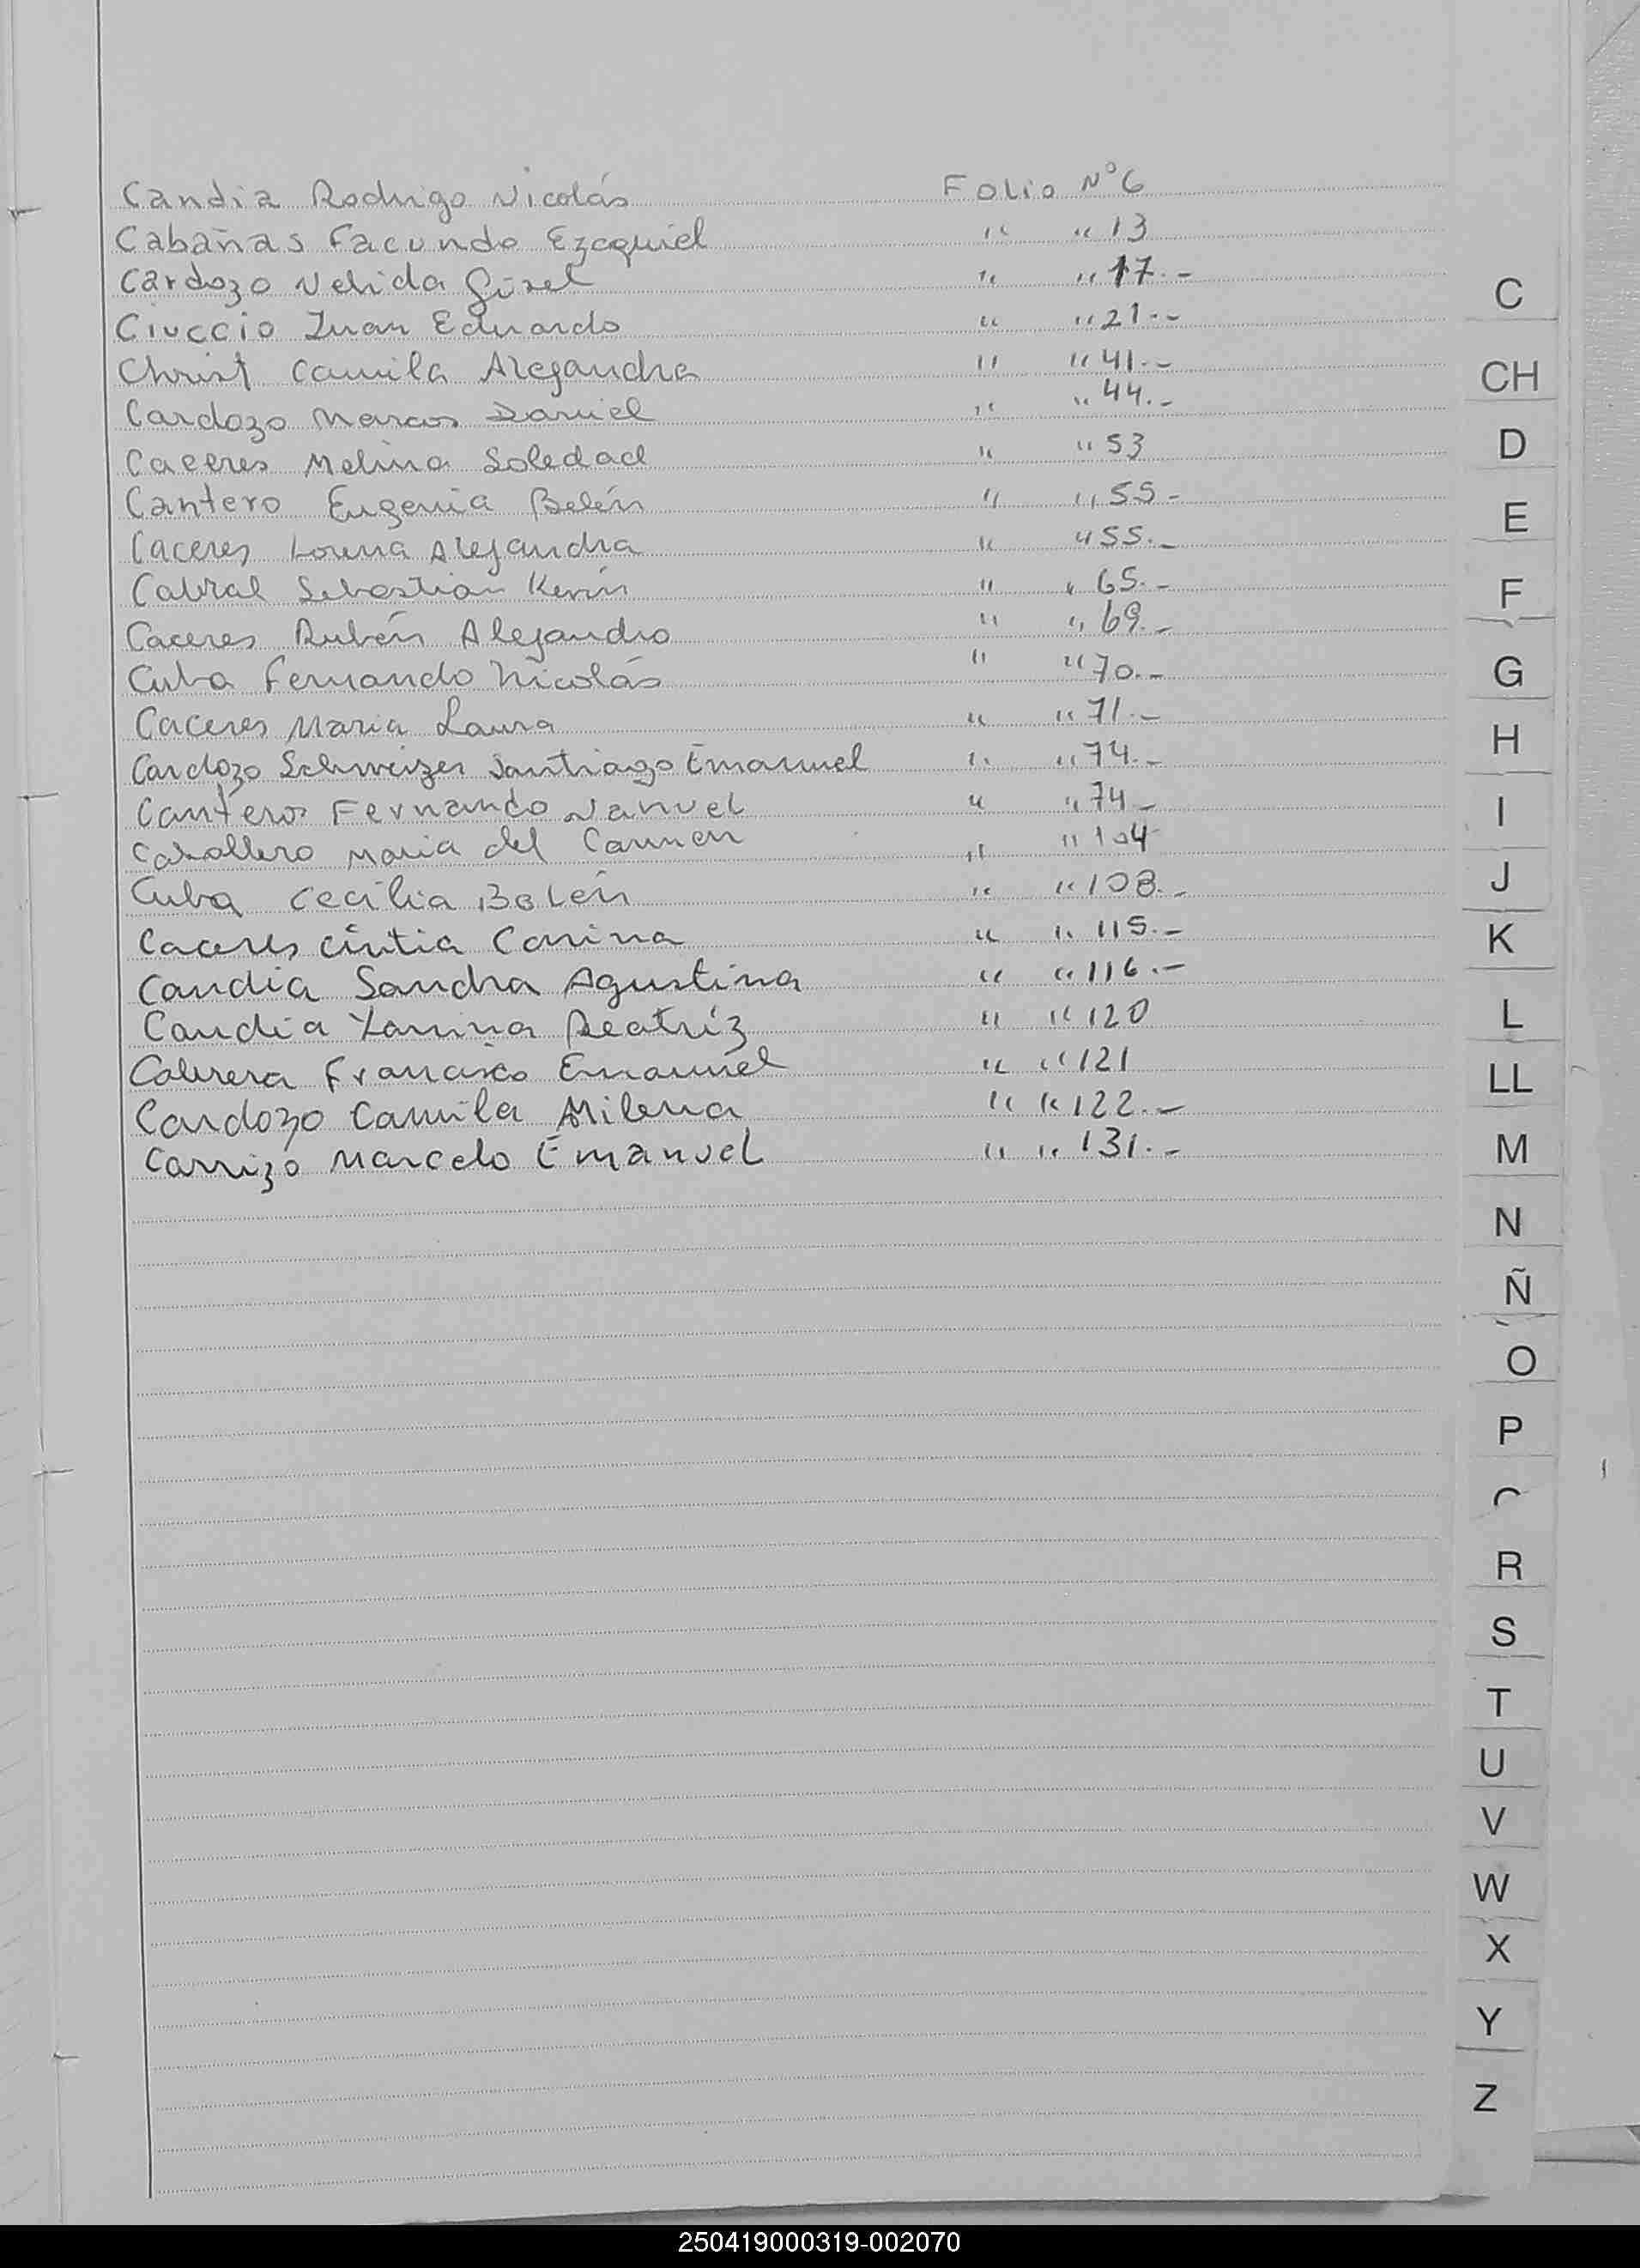 Candia Rodrigo Nicolás Folio Nº 6
Cabañas Facundo Ezequiel " " 13
Cardozo Nelida Gisel " " 17.-
Ciuccio Juan Eduardo " " 21.-
Christ Camila Alejandra " " 41.-
Cardozo Marcos Daniel " " 44.-
Caceres Melina Soledad " " 53
Cantero Eugenia Belén " " 55-
Caceres Lorena Alejandra " " 55.-
Cabral Sebastian Kevin " " 65.-
Caceres Rubén Alejandro " " 69.-
Cuba Fernando Nicolás " " 70.-
Caceres Maria Laura " " 71.-
Cardozo Schweizer Santiago Emanuel " " 74.-
Cantero Fernando Nanuel " " 74-
Caballero Maria del Carmen " " 104
Cuba Cecilia Belén " " 108.-
Caceres Cintia Corina " " 115.-
Candia Sandra Agustina " " 116.-
Candia Yanina Beatríz " " 120
Cabrera Francisco Emanuel " " 121
Cardozo Camila Milena " " 122.-
Carrizo Marcelo Emanuel " " 131.-
C
CH
D
E
F
G
H
I
J
K
L
LL
M
N
Ñ
O
P
R
S
T
U
V
W
X
Y
Z
250419000319-002070